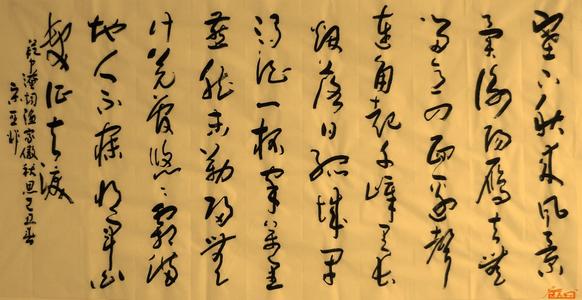 塞下秋来风景
异衡阳雁去無
留意四面邊聲
連角起千嶂里長
烟落日孤城闭
浊酒一杯家萬里
燕然未勒歸無
计羌管悠悠霜满
地人不寐将军白
髮征夫淚
范中淹词渔家傲秋思己丑春